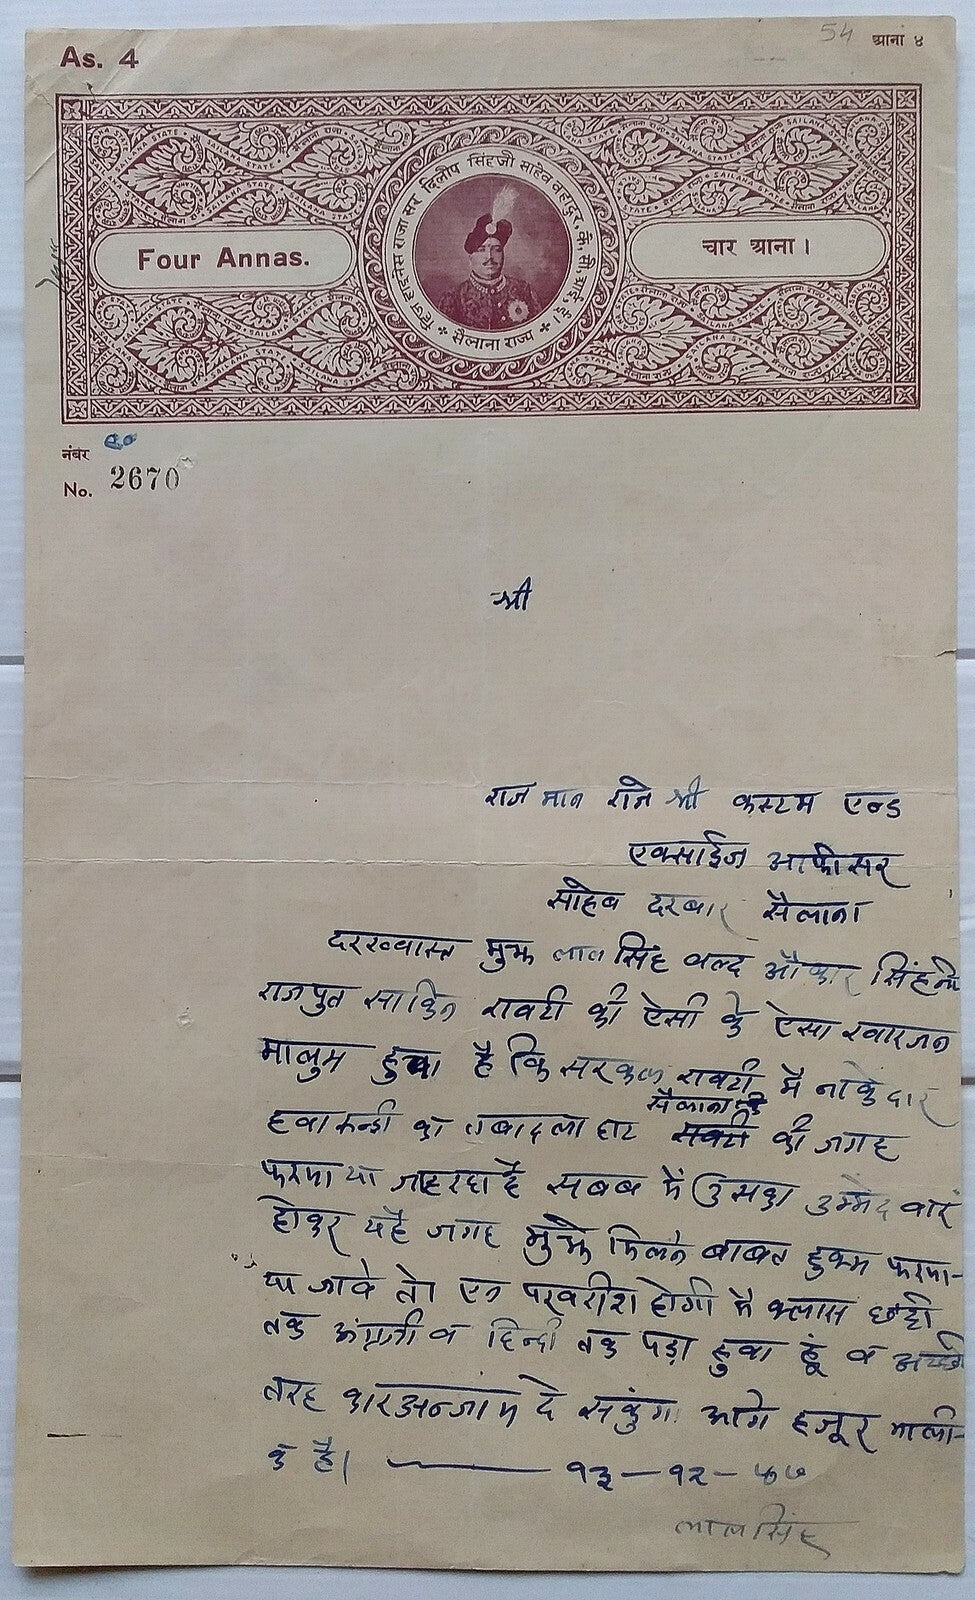 As. 4
54
आना ४
हिज हाइनेस राजा सर दिलीप सिंहजी साहेब बहादुर, के. सी. आई. ई.
सैलाना राज्य
SAILANA STATE
सैलाना राज्य
Four Annas.
चार आना।
नंबर
No. 2670
श्री
राज मान राजे श्री कस्टम एन्ड
एक्साईज आफीसर
साहेब दरबार सैलाना
दरख्वास्त मुझ लाल सिंह वल्द औकार सिंहजी
राजपुत साकिन रावटी की ऐसी के ऐसा
मालुम हुवा है कि सरकल रावटी मै नाकेदार
सैलाना के
का तबादला हाट की जगह
फरमाया जाहरहा है सबब में उसका उम्मेदवार
होकर यहे जगह मुझे मिलने बाबत हुक्म फरमा-
या जावे तो परवरीश होगी मै क्लास छटी
तक अंग्रजी व हिन्दी तक पड़ा हुवा हूं व अच्छी
तरह कारअन्जाम दे सकुंगा आगे हजूर माली-
क है। १३-१२-४७
लालसिंह